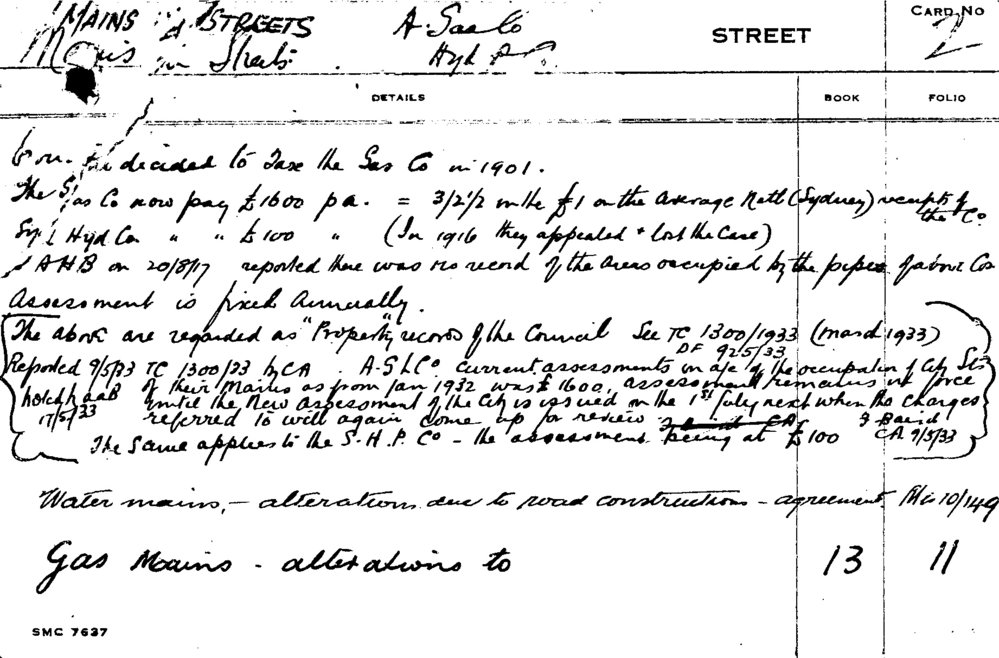 MAINS in STREETS A. Gas Co STREET CARD NO
Mains in Streets. Hyd P Co 2
DETAILS BOOK FOLIO
decided to Tax the Gas Co in 1901.
The Gas Co now pay £1600 pa. = 3/2½ in the £1 on the average Nett (Sydney) receipts of the Co.
Syd Hyd Co " " £100 " (In 1916 they appealed + lost the Case)
AHB on 20/8/17 reported there was no record of the areas occupied by the pipes of above Cos
Assessment is fixed Annually.
The above are regarded as "Property" records of the Council See TC 1300/1933 (March 1933)
DF 925/33
Reported 9/5/33 TC 1300/33 by CA. A.G.L.Co. current assessments in a/c of the occupation of City Sts
of their Mains as from Jan 1932 was £1600, assessment remains in force
until the New Assessment of the City is issued on the 1st July next when the charges
17/5/33 referred to will again come up for review CA
The Same applies to the S.H.P. Co - the assessment being at £100 CA 9/5/33
Water mains, - alterations due to road constructions - agreement. Mis 10/149
Gas Mains - alterations to 13 11
SMC 7637